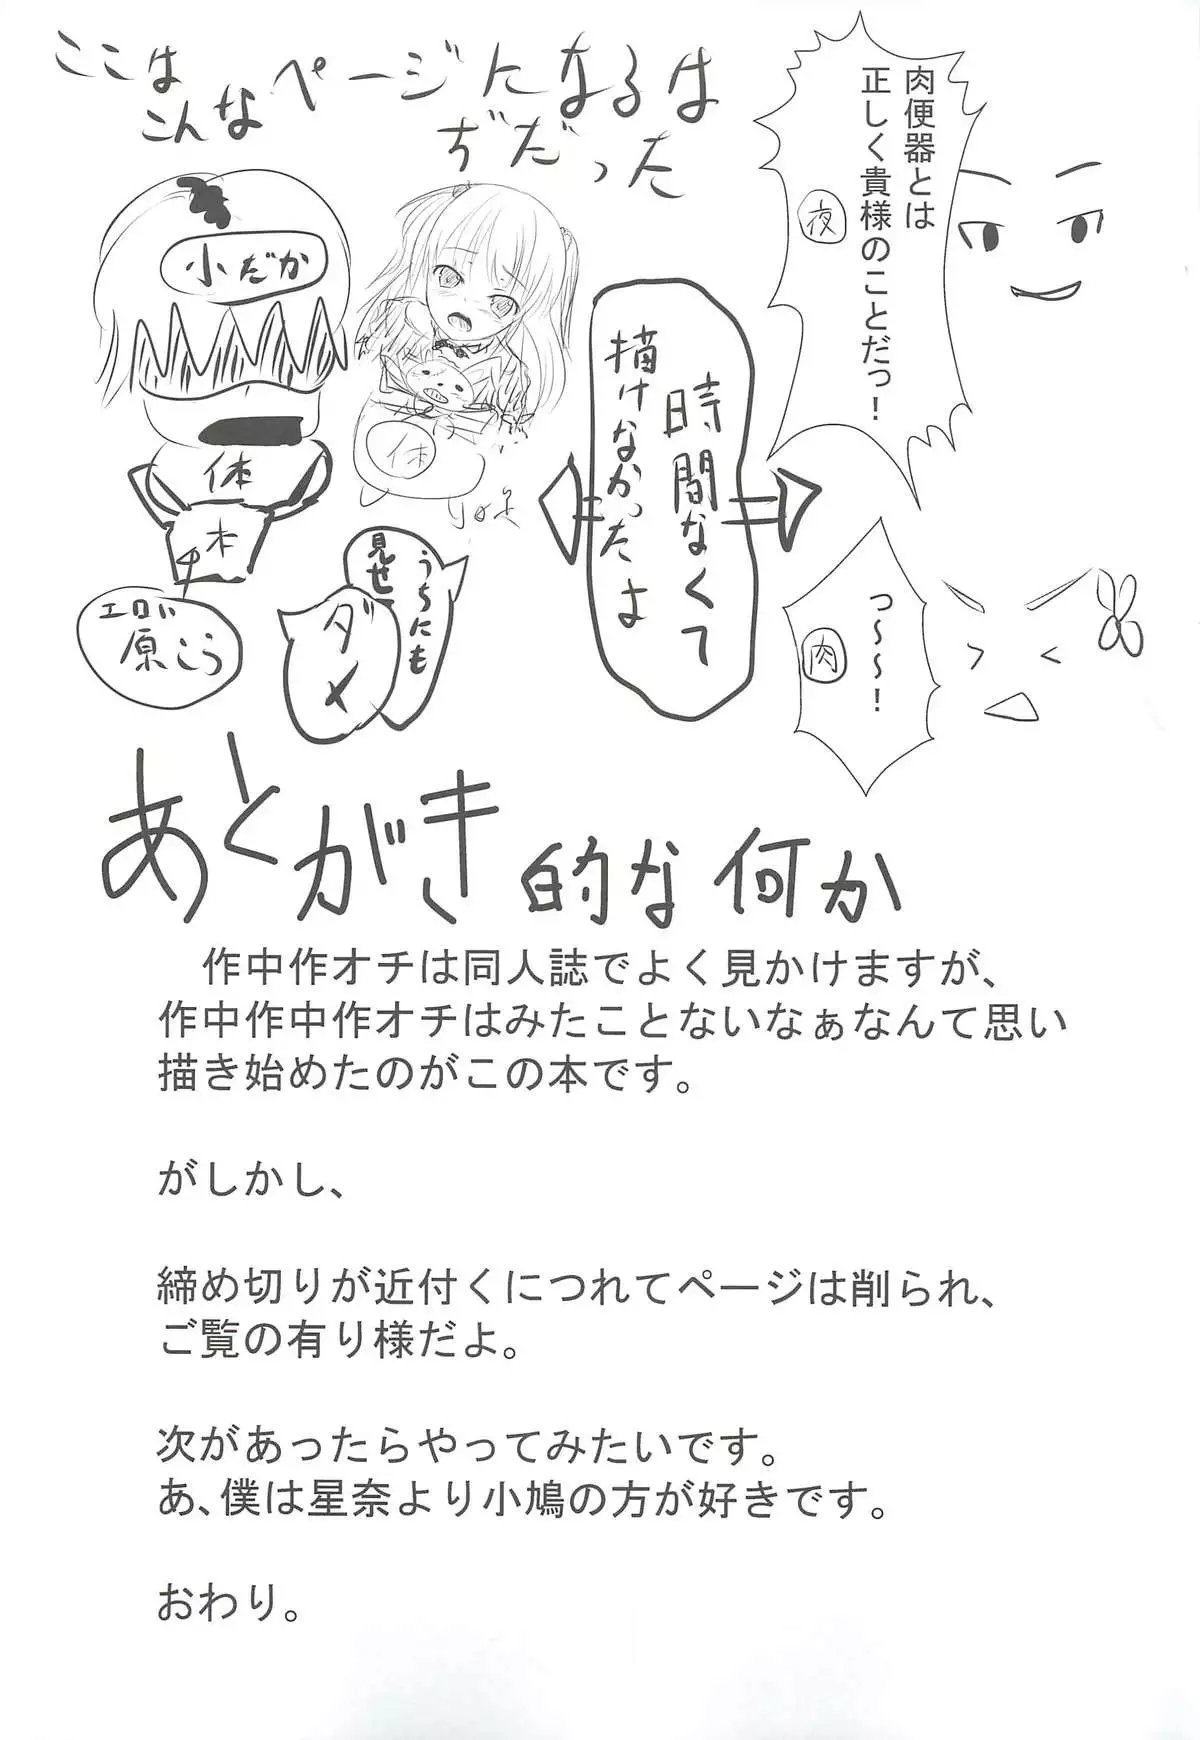 ここは
こんなページになるは
ぢだった
肉便器とは
正しく貴様のことだっ！
夜
小だか
体
本
エロい
原こう
体
時間なくて
描けなかったよ
うちにも
見せて
ダメ
っ～～～！
肉
あとがき的な何か
作中作オチは同人誌でよく見かけますが、
作中作中作オチはみたことないなぁなんて思い
描き始めたのがこの本です。
がしかし、
締め切りが近付くにつれてページは削られ、
ご覧の有り様だよ。
次があったらやってみたいです。
あ、僕は星奈より小鳩の方が好きです。
おわり。